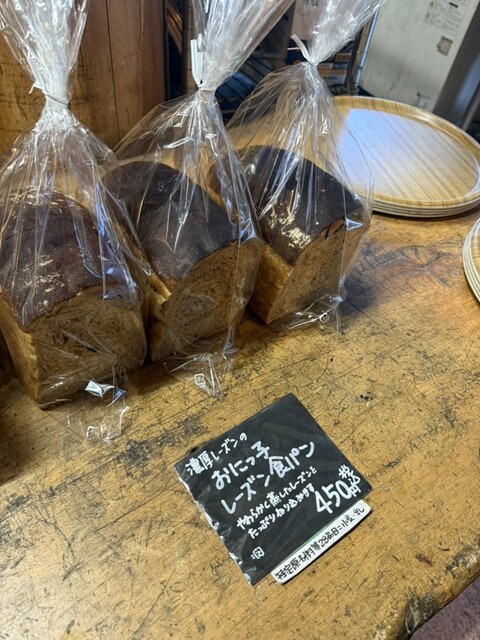 濃厚レーズンの
おりこっ子
レーズン食パン
やわらかく蒸したレーズンを
たっぷり
450円
特定原材料等28品目=小麦、乳